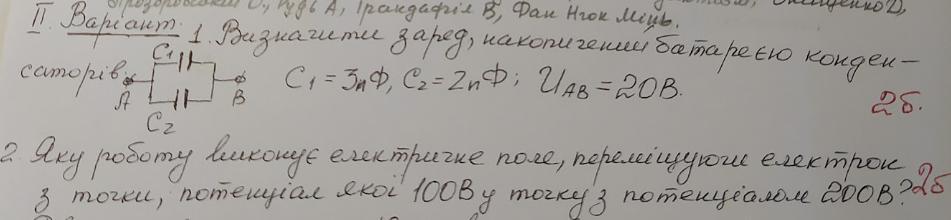 Гудь А, Грандафіл В, Фан Нгок Мінь.
II Варіант. 1. Визначити заряд, накопичений батареєю конден-
саторів C1 C1 = 3пФ, C2 = 2пФ; UАВ = 20В.
А В
C2 2б.
2. Яку роботу виконує електричне поле, переміщуючи електрон
з точки, потенціал якої 100В у точку з потенціалом 200В? 2б